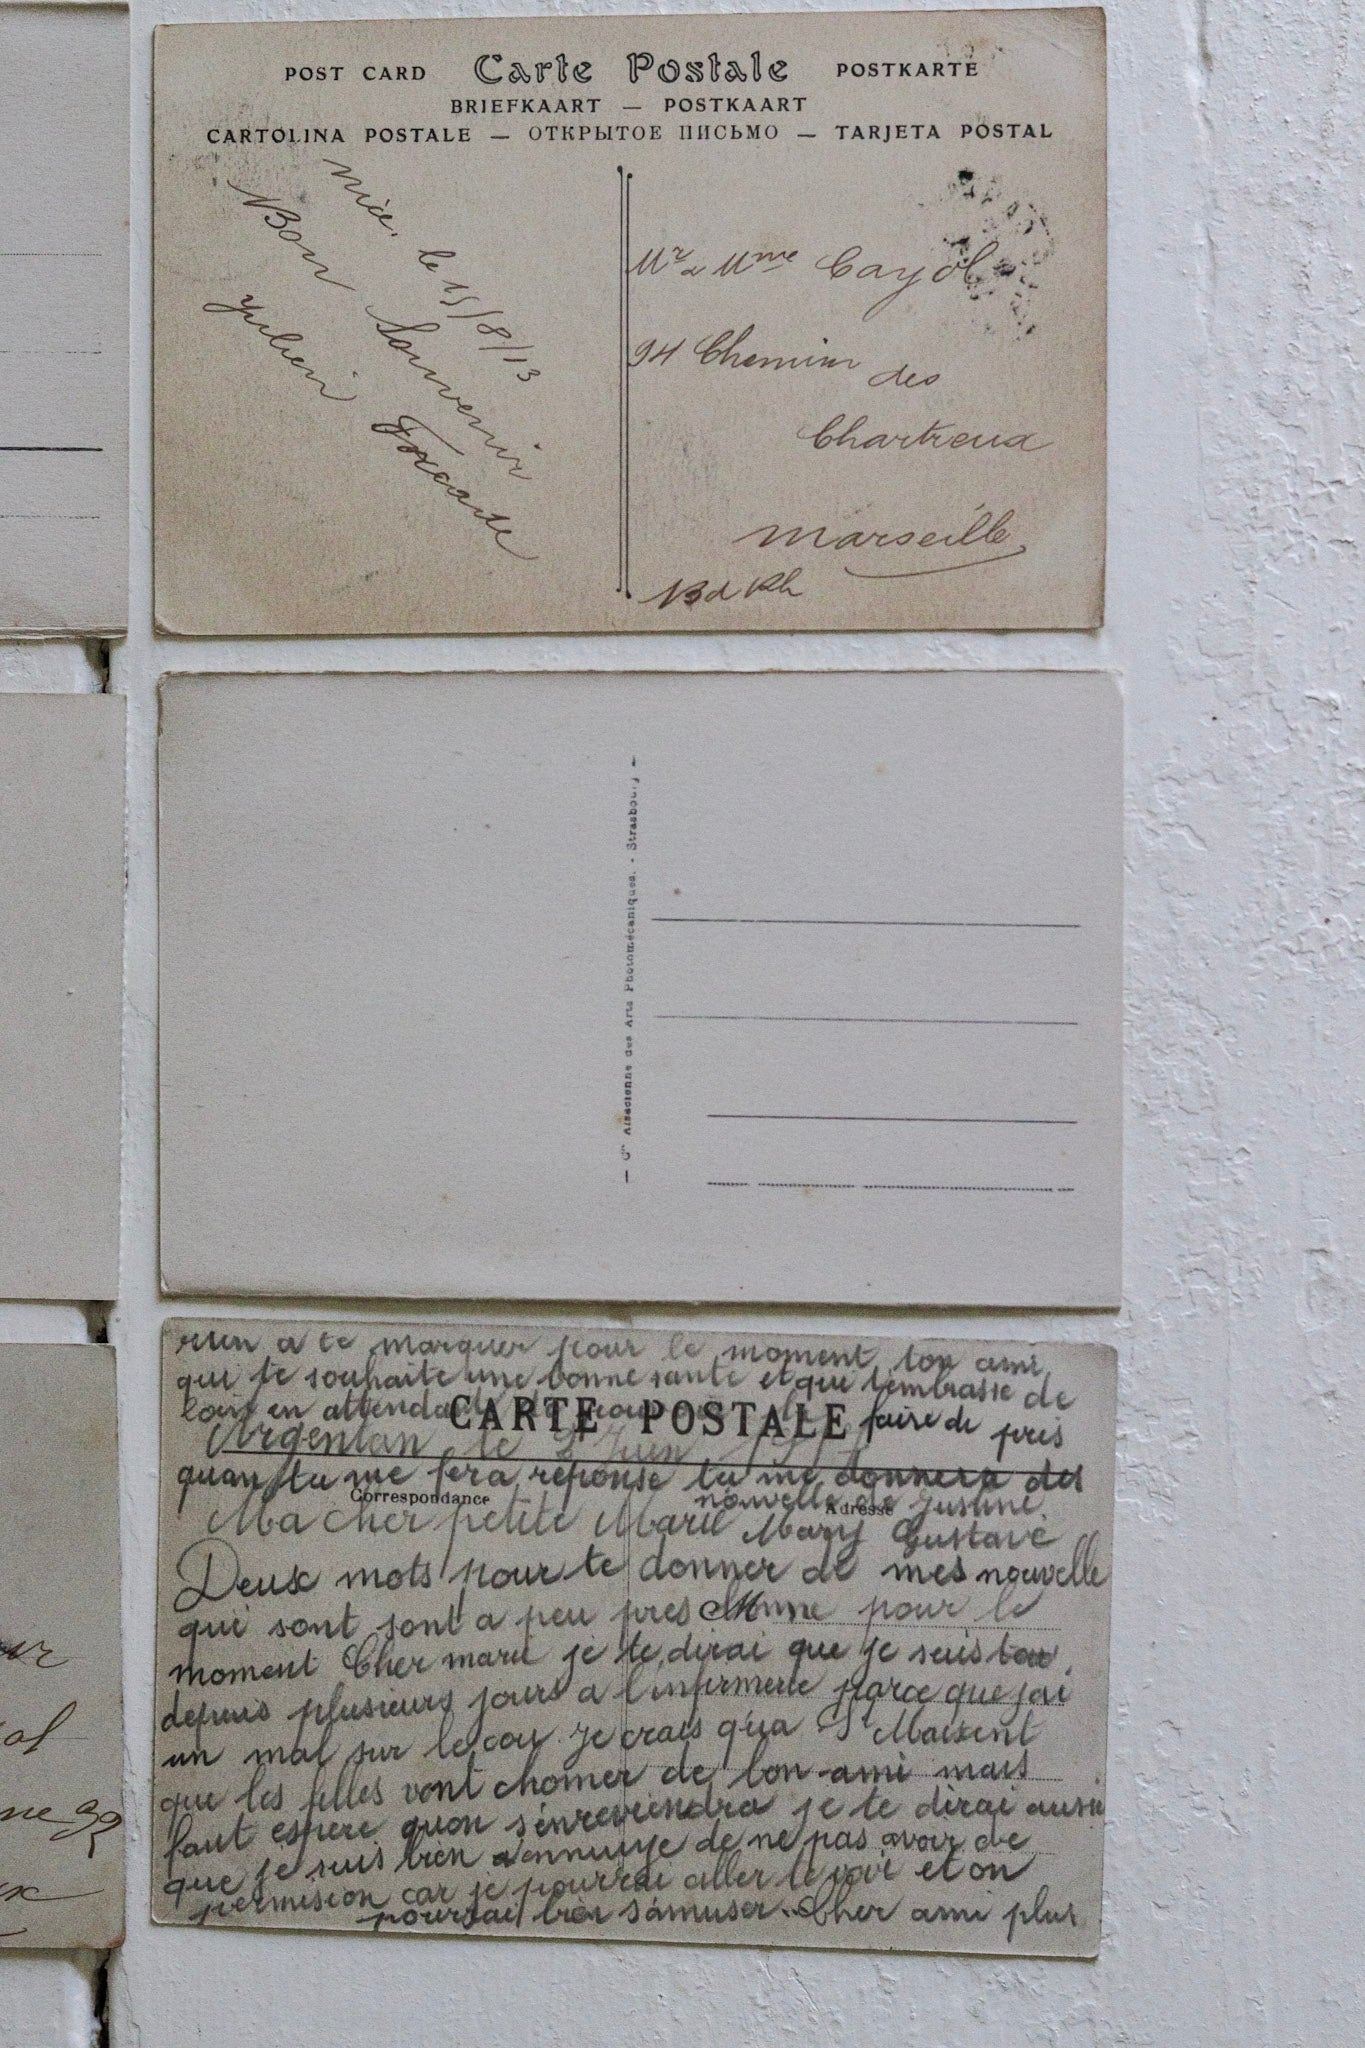 POST CARD Carte Postale POSTKARTE
BRIEFKAART — POSTKAART
CARTOLINA POSTALE — ОТКРЫТОЕ ПИСЬМО — TARJETA POSTAL
Nice, le 15/8/13
Bon Souvenir
Julien Forcade
Mr & Mme Cayol
94 Chemin des
Chartreux
Marseille
B d Rh
— Cie Alsacienne des Arts Photomécaniques. - Strasbourg —
rien a te marquer pour le moment ton ami
qui te souhaite une bonne santé et que t'embrasse de
loin en attendant de faire de pres
CARTE POSTALE
Argentan le 2 Juin
quan tu me fera réponse tu me donnera des
nouvelle de Justine
Correspondance
Adresse
Ma cher petite Marie Mary Gustave
Deux mots pour te donner de mes nouvelle
qui sont sont a peu pres bonne pour le
moment Cher marie je te dirai que je suis
depuis plusieurs jours a l'infirmerie parce que jai
un mal sur le cou je crais qua St Maixent
que les filles vont chomer de bon ami mais
faut espere quon s'enreviendra je te dirai aussi
que je suis bien ennuye de ne pas avoir de
permision car je pourrai aller te voir et on
pourrai bien s'amuser. Cher ami plus